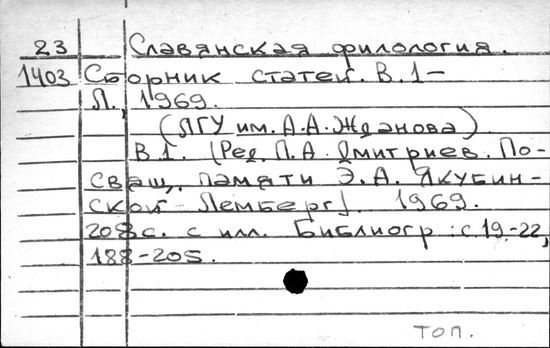 23 Славянская филология.
1403 Сборник статей. В. 1-
Л., 1969.
(ЛГУ им. А.А. Жданова)
В 1. (Ред. П.А. Дмитриев. По-
свящ. памяти Э.А. Якубин-
ской-Лемберг). 1969.
208 с. с илл. Библиогр: с. 19-22,
188-205.
топ.